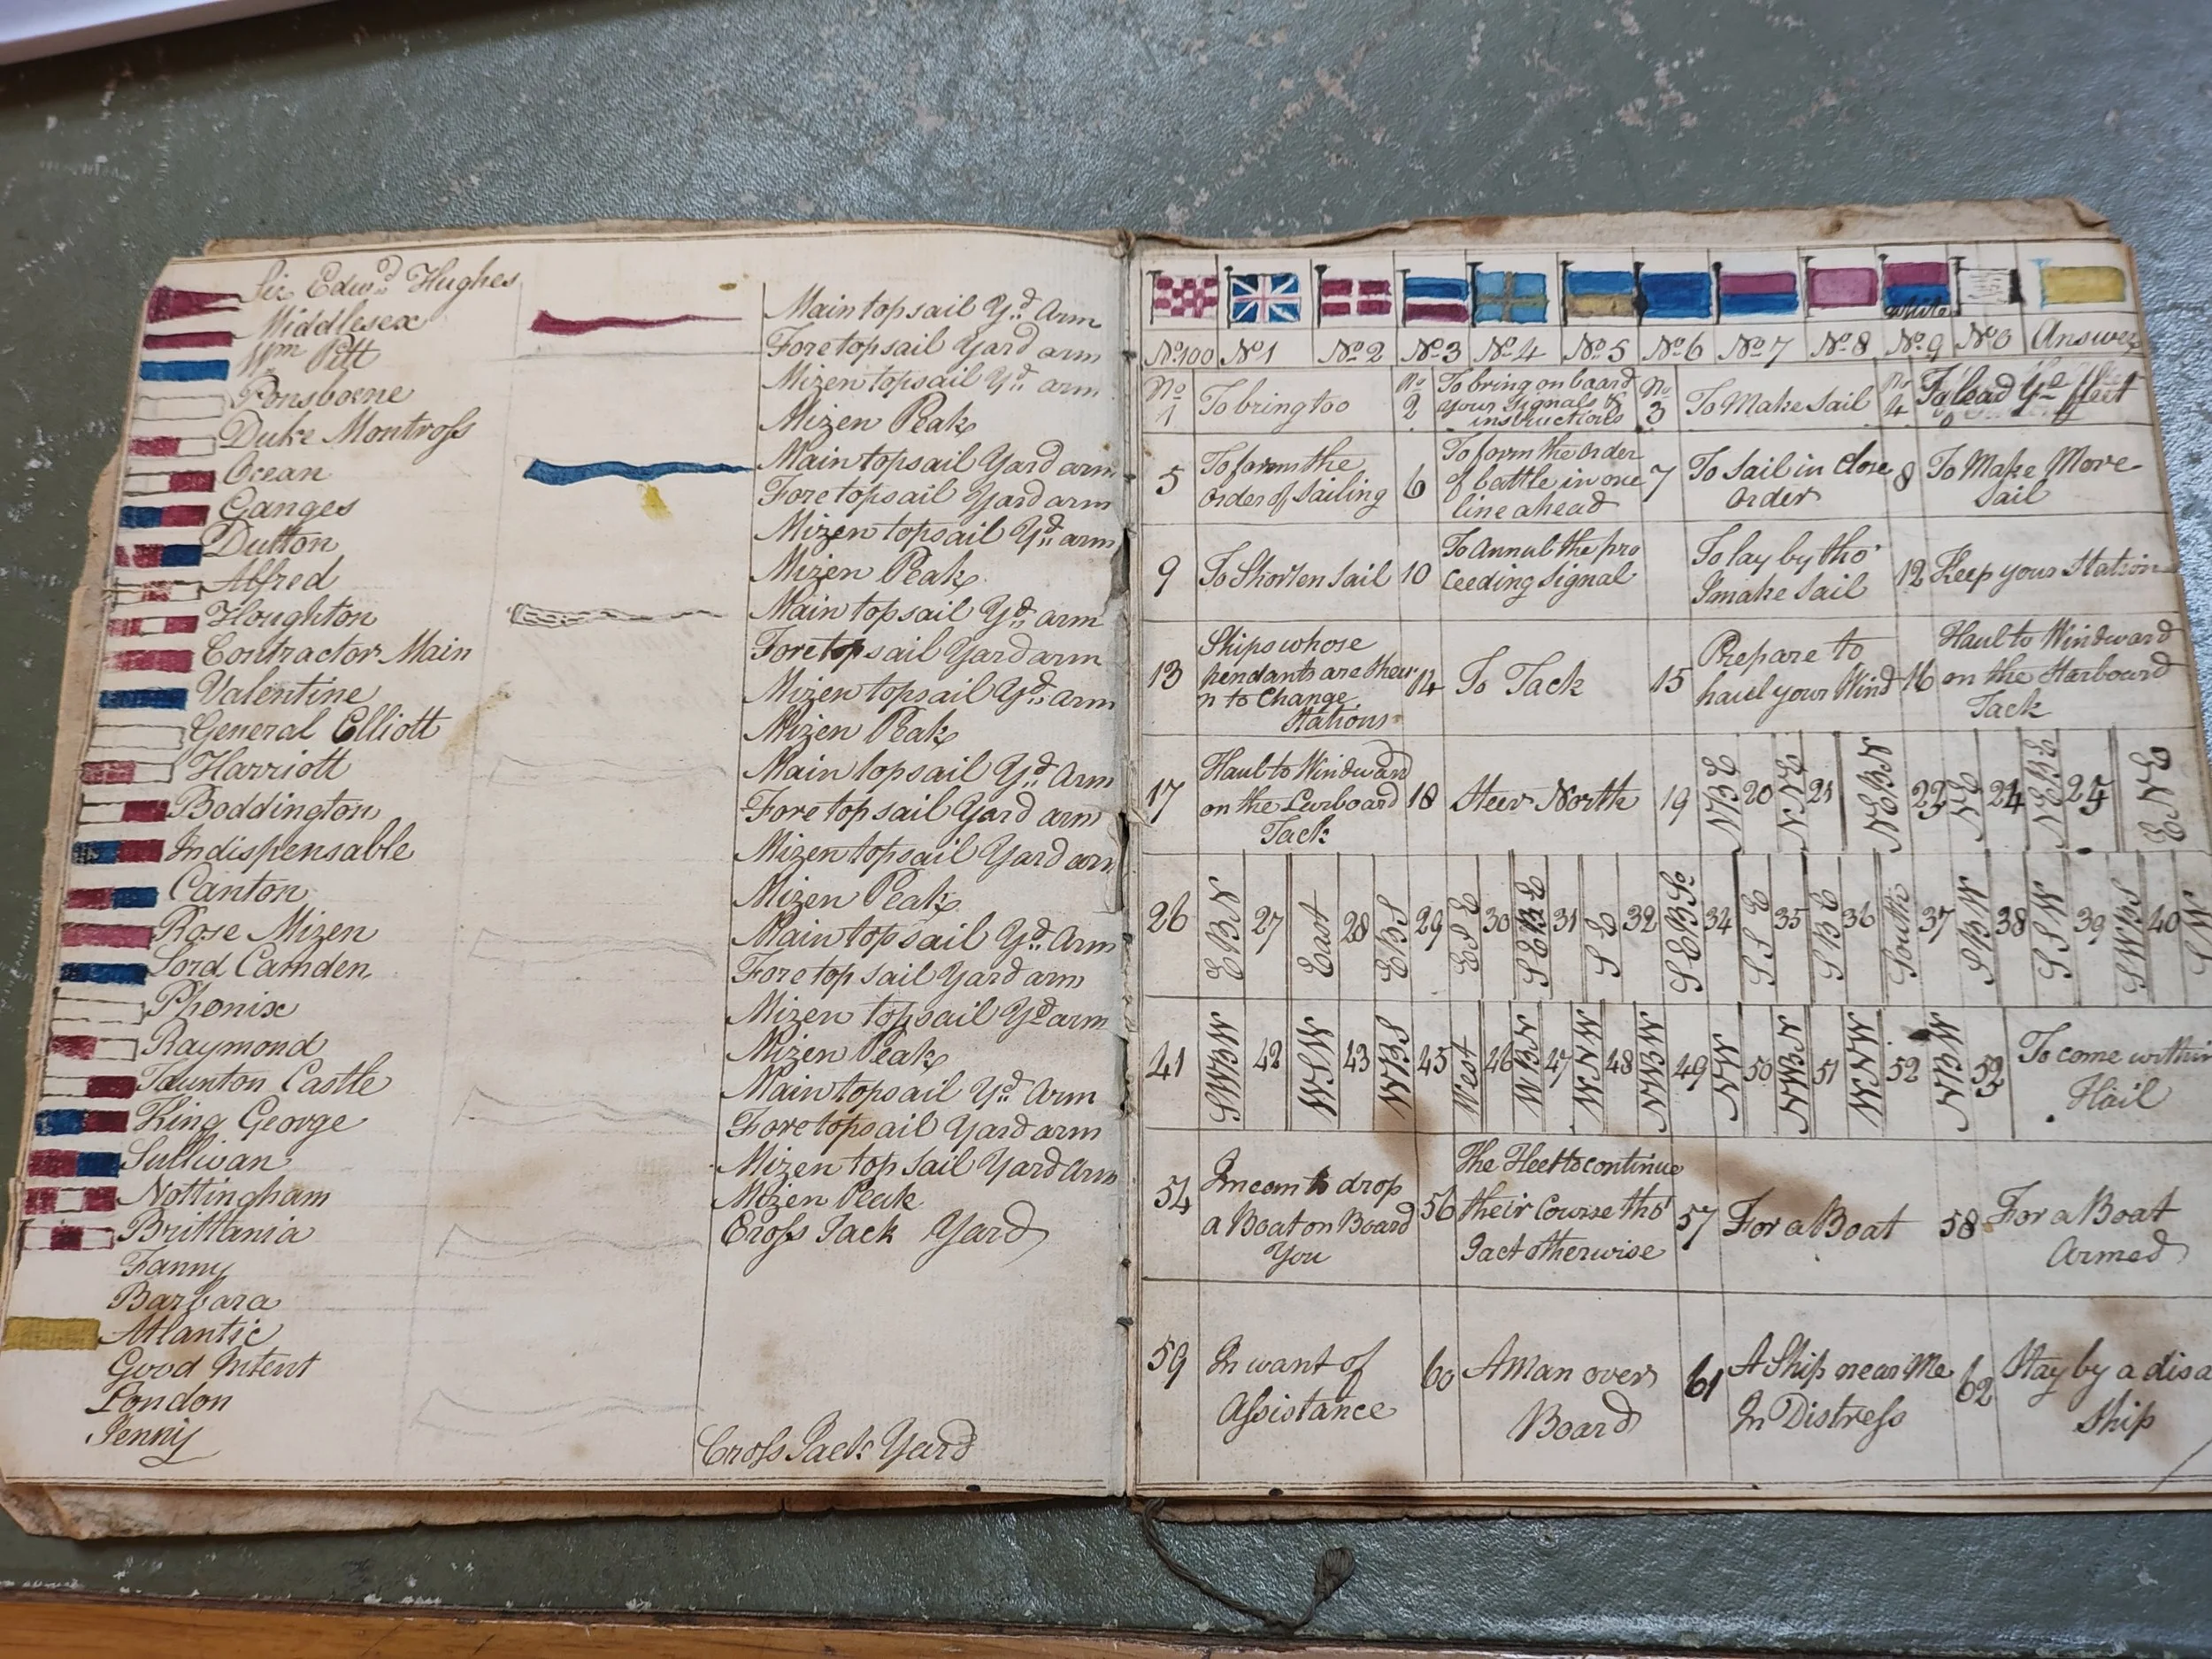 Sir Edwd Hughes
Middlesex
Wm Pitt
Ponsborne
Duke Montross
Ocean
Ganges
Dutton
Alfred
Houghton
Contractor Main
Valentine
General Elliott
Harriott
Boddington
Indispensable
Canton
Rose Mizen
Lord Camden
Phenix
Raymond
Taunton Castle
King George
Sullivan
Nottingham
Brittania
Fanny
Barbara
Atlantic
Good Intent
London
Jenny
Main topsail Yd Arm
Fore topsail Yard arm
Mizen topsail Yd arm
Mizen Peak
Main topsail Yard arm
Fore topsail Yard arm
Mizen topsail Yd arm
Mizen Peak
Main topsail Yd arm
Fore topsail Yard arm
Mizen topsail Yd arm
Mizen Peak
Main topsail Yd Arm
Fore topsail Yard arm
Mizen topsail Yard arm
Mizen Peak
Main topsail Yd Arm
Fore topsail Yard arm
Mizen topsail Yd arm
Mizen Peak
Main topsail Yd Arm
Fore topsail Yard arm
Mizen topsail Yard Arm
Mizen Peak
Cross Jack Yard
Cross Jack Yard
white
No 100 No 1 No 2 No 3 No 4 No 5 No 6 No 7 No 8 No 9 No 0 Answer
No 1 To bring too
No 2 To bring on board
your Signals &
instructions
No 3 To Make Sail
No 4 To lead ye fleet
5 To form the
order of Sailing
6 To form the order
of battle in one
line ahead
7 To Sail in Close
order
8 To Make More
Sail
9 To Shorten Sail
10 To Annul the pro
ceeding Signal
To lay by tho'
I make Sail
12 Keep your Station
13 Ships whose
pendants are shew
n to Change
Stations
14 To Tack
15 Prepare to
haul your Wind
16 Haul to Windward
on the Starboard
Tack
17 Haul to Windward
on the Larboard
Tack
18 Steer North
19 NBE
20 NNE
21 NEBN
22 NE
24 NEBE
25 ENE
26 EBN
27 East
28 EBS
29 ESE
30 SEBE
31 SE
32 SEBSo
34 SSE
35 SBE
36 South
37 SBW
38 SSW
39 SWBS
40 SW
41 SWBW
42 WSW
43 WBS
45 West
46 WBN
47 WNW
48 NWBW
49 NW
50 NWBN
51 WNW
52 NBW
53 To come within
Hail
54 I mean to drop
a Boat on Board
You
56 The Fleet to continue
their Course tho'
I act otherwise
57 For a Boat
58 For a Boat
Armed
59 In want of
Assistance
60 A Man over
Board
61 A Ship near Me
In Distress
62 Stay by a disa
Ship